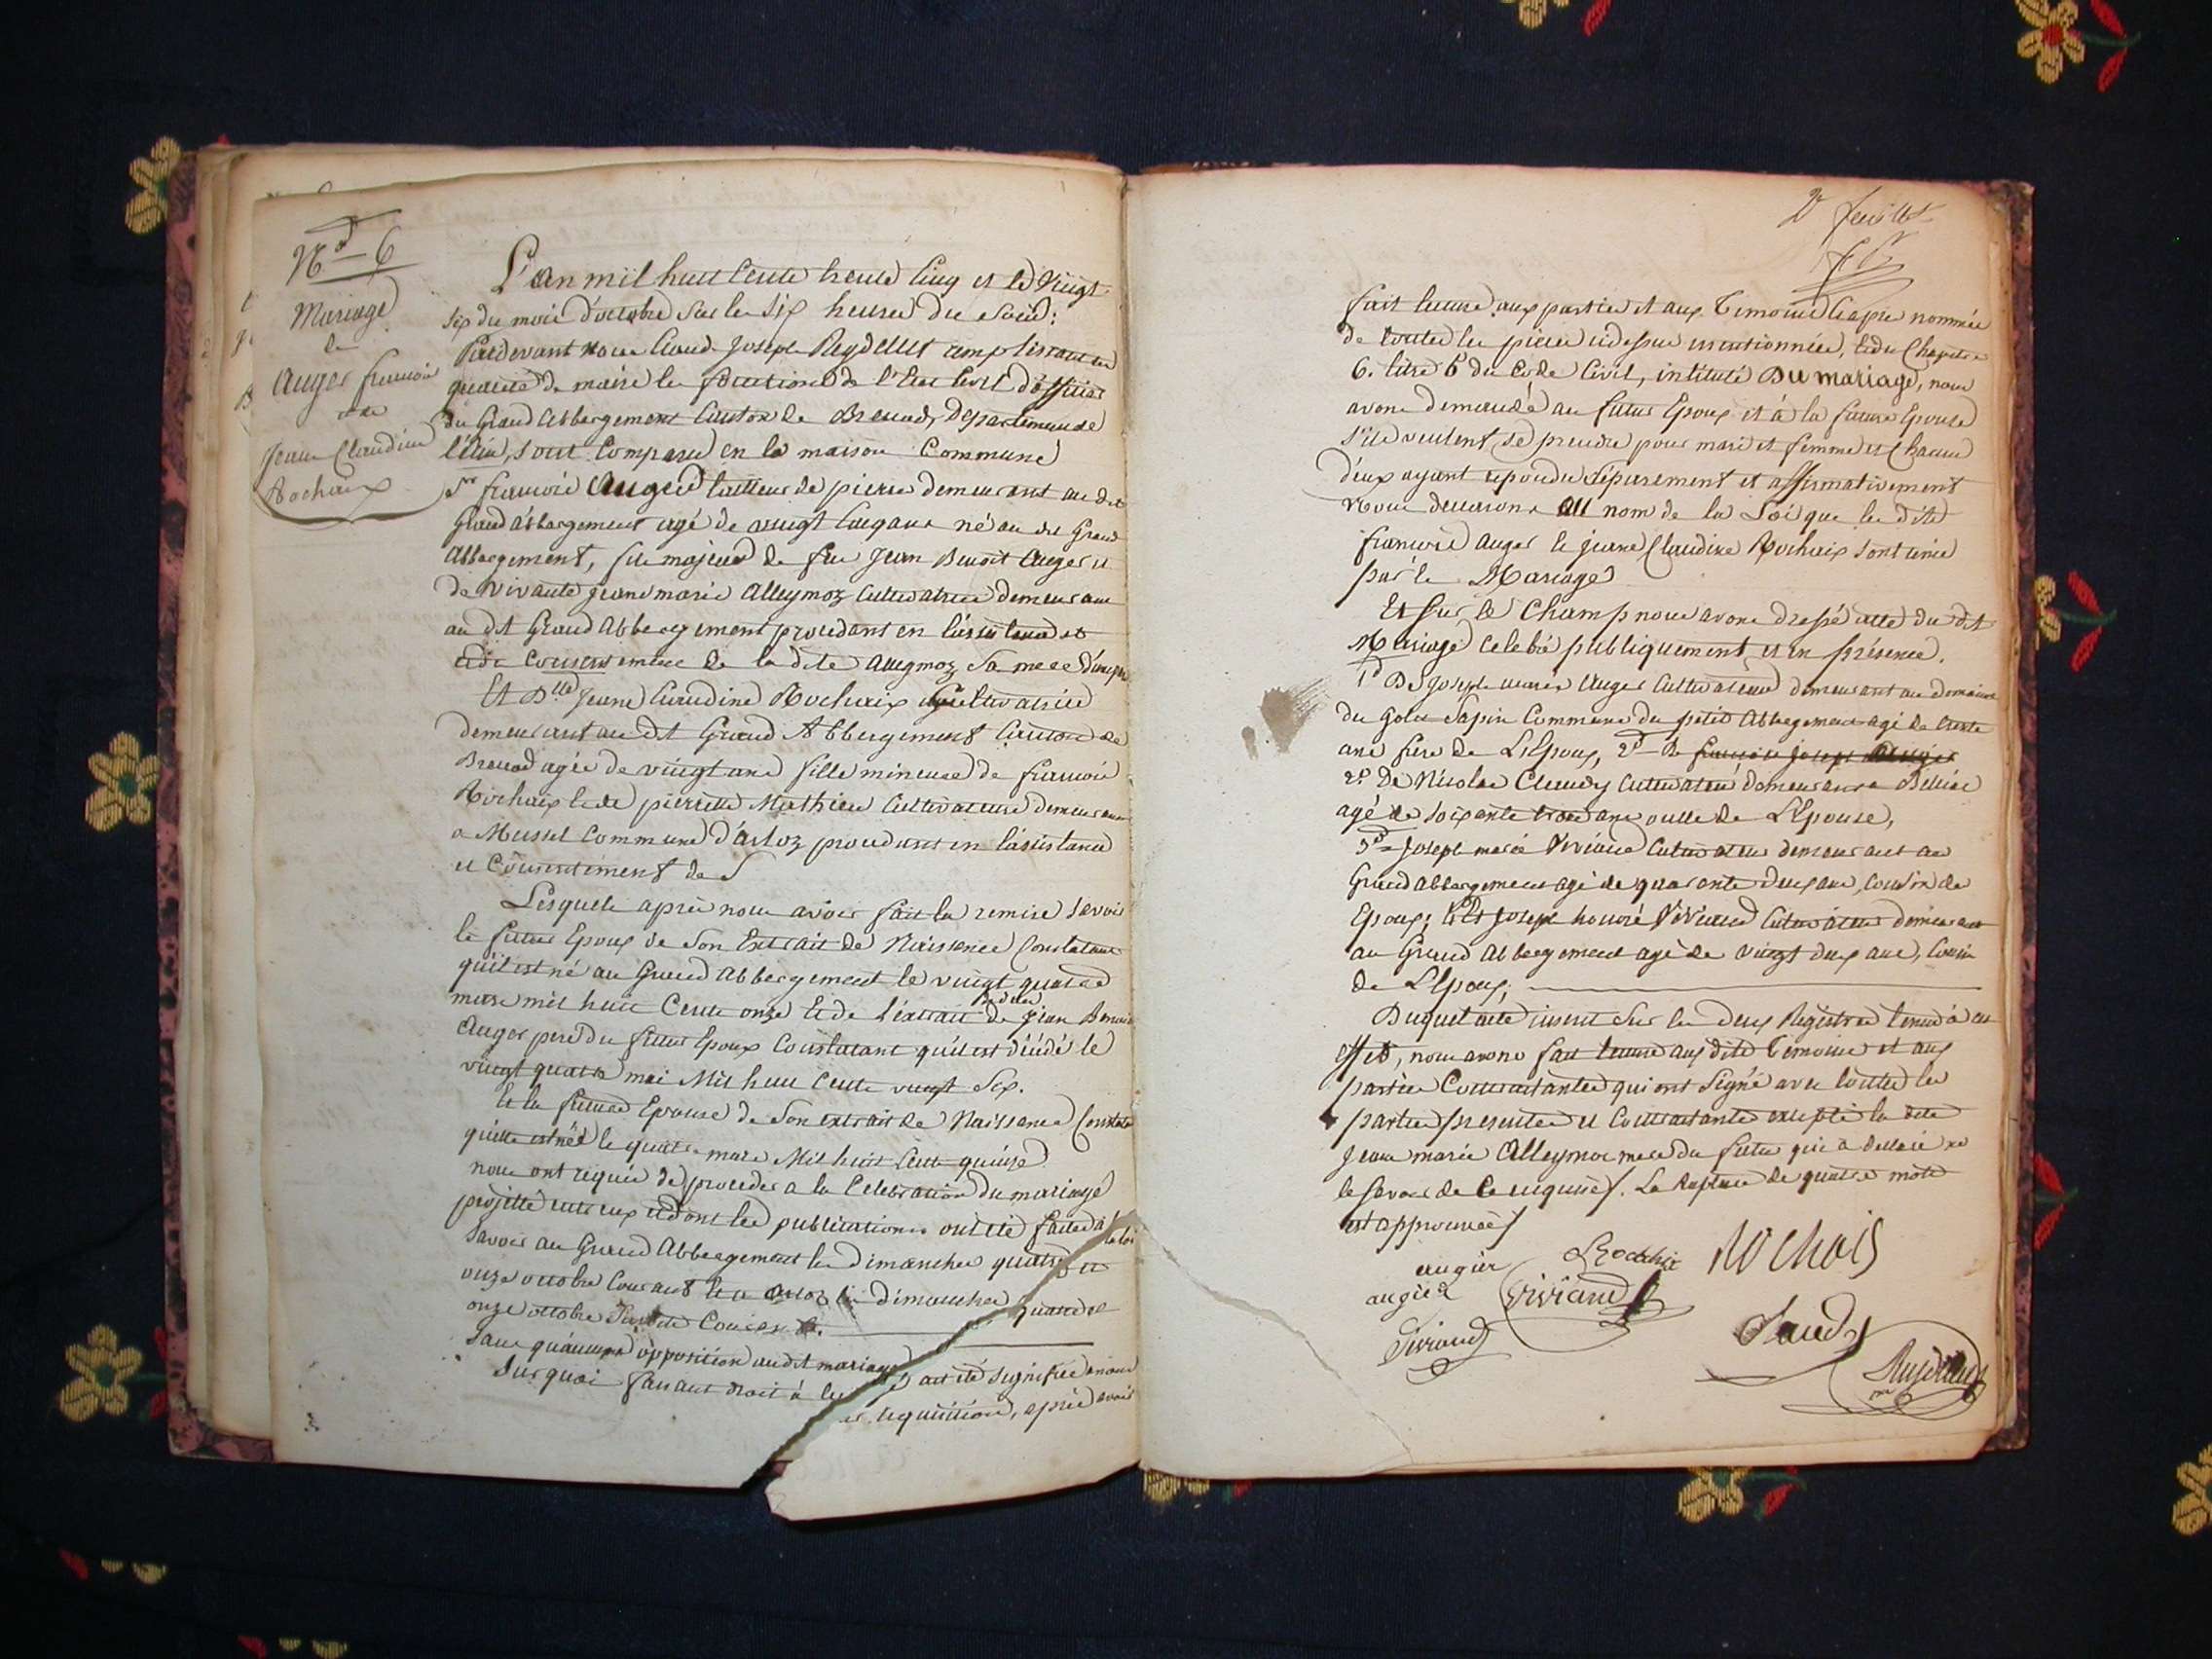 No 6
Mariage
de
Auger françois
et de
Jeane Claudine
Rochaix
L'an mil huit Cents trente Cinq et le Vingt
six du mois d'octobre sur les six heures du soir:
Pardevant nous Claude Joseph Reydellet remplissant en
qualité de maire les fonctions de l'Etat Civil d'officier
du Grand Abbergement Canton de Brenod, Departement de
l'Ain, sont Comparu en la maison Commune
Sr françois Augier tailleur de pierre demeurant au dit
Grand abbergement agé de vingt Cinq ans né au dit Grand
Abbergement, fils majeur de feu Jean Benoit Auger et
de vivante Jeane marie Alleymoz Cultivatrice demeurant
au dit Grand Abbergement procedant en l'assistance et
de Consentement de la dite Aleymoz Sa mere d'une part
Et Dlle Jeane Claudine Rochaix Cultivatrice
demeurant au dit Grand Abbergement Canton de
Brenod agée de vingt ans fille mineure de françois
Rochaix et de pierrette Mathieu Cultivateurs demeurant
a Mussel Commune d'arloz procedant en l'assistance
et Consentement de
Lesquels après nous avoir fait la remise savoir
le futur Epoux de Son Extrait de Naissance Constatant
qu'il est né au Grand Abbergement le vingt quatre
mars mil huit Cents onze et de l'extrait de deces de Jean Benoit
Auger pere du futur Epoux Constatant qu'il est décédé le
vingt quatre mai Mil huit Cents vingt Six.
Et la future Epouse de Son extrait de Naissance Constatant
qu'elle est née le quatre mars Mil huit Cents quinze
nous ont requis de proceder a la Celebration du mariage
projetté entre eux et dont les publications ont été faites à la loi
Savoir au Grand Abbergement les dimanches quatre et
onze octobre Courant et a arloz les dimanches quatre et
onze octobre Courant.
Sans qu'aucune opposition au dit mariage ait été signifiée a nous
Sur quoi faisant droit à leur requisition, après avoir
2e feuillet
fait lecture aux parties et aux Temoins Ciapres nommés
de toutes les pieces cidessus mentionnées, et du Chapitre
6. titre 5 du Code Civil, intitulé Du mariage, nous
avons demandé au futur Epoux et à la future Epouse
s'ils veulent se prendre pour mari et femme et Chacun
d'eux ayant repondu Séparement et affirmativement
Nous declarons au nom de la Loi que les dits
françois Auger et jeane Claudine Rochaix Sont unis
par le Mariage
Et Sur le Champ nous avons dressé acte du dit
Mariage Celebré publiquement et en présence.
1º De Joseph marie Auger Cultivateur demeurant au domaine
du Golet Sapin Commune du petit Abbergement agé de trente
ans frere de L'Epoux, 2º de françois joseph Auger
2º De Nicolas Claudy Cultivateur demeurant a
agé de soixante trois ans oncle de L'Epouse,
3º Joseph marie Viviand Cultivateur demeurant au
Grand Abbergement agé de quarante deux ans, Cousin de
Epoux; Et Joseph honoré Viviand Cultivateur demeurant
au Grand Abbergement agé de vingt deux ans, Cousin
de L'Epoux,
Duquel acte inscrit Sur les deux Registres tenus à cet
effet, nous avons fait lecture aux dits Temoins et aux
parties Contractantes qui ont Signé avec toutes les
parties presentes et Contractantes excepté la dite
Jeane marie Alleymoz mere du futur qui a declaré ne
le savoir de ce enquise. La Rapture de quatre mots
est approuvée
augier Rochaix Rochais
augier Viviand
Viviand Claudy
Reydellet